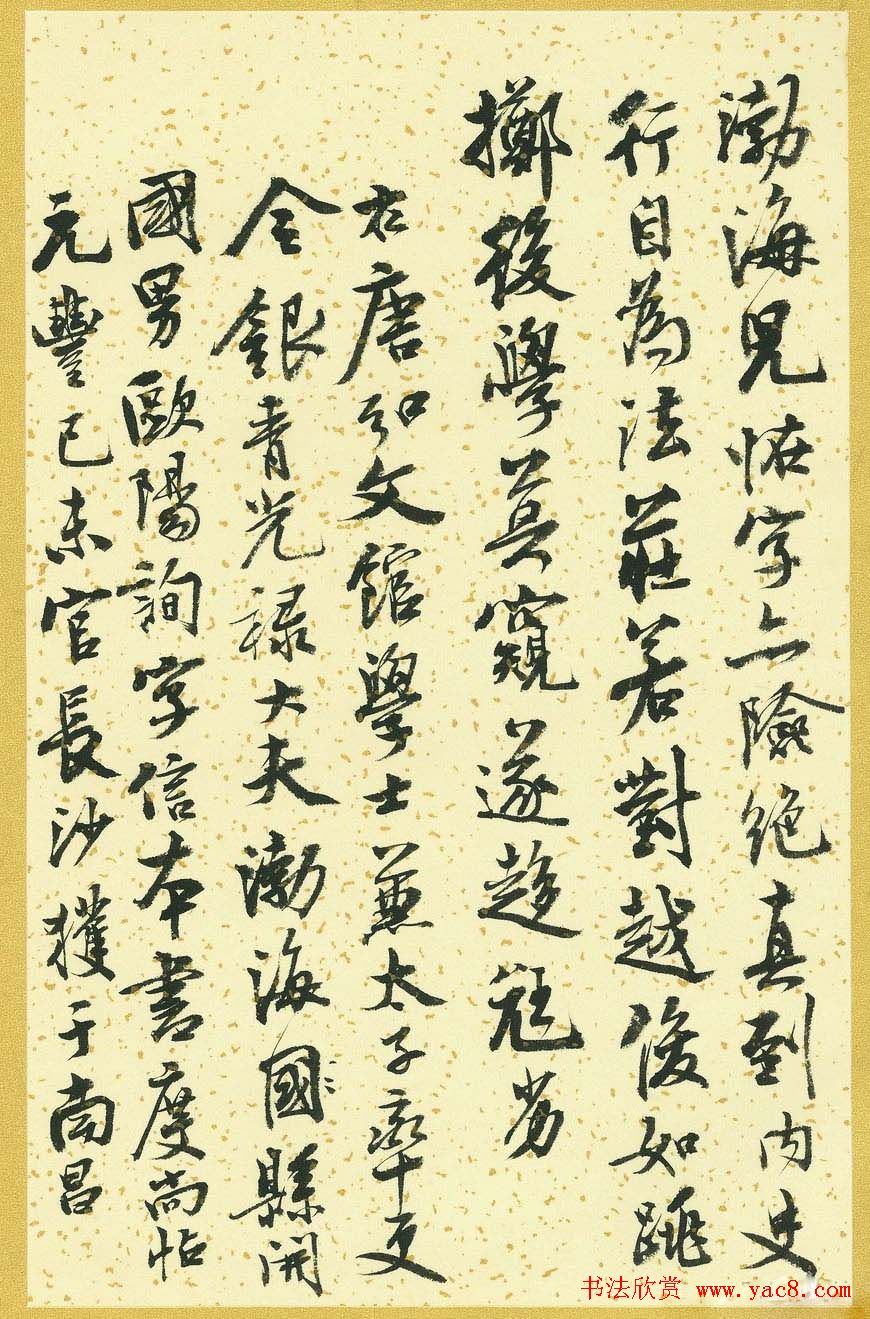 渤海光恠字亦險絕真到內史
行自為法莊若對越俊如跳
擲後學莫窺遂趍尪劣
右唐弘文館學士兼太子率更
令銀青光祿大夫渤海國縣開
國男歐陽詢字信本書度尚帖
元豐己未官長沙獲于南昌
书法欣赏 www.yac8.com